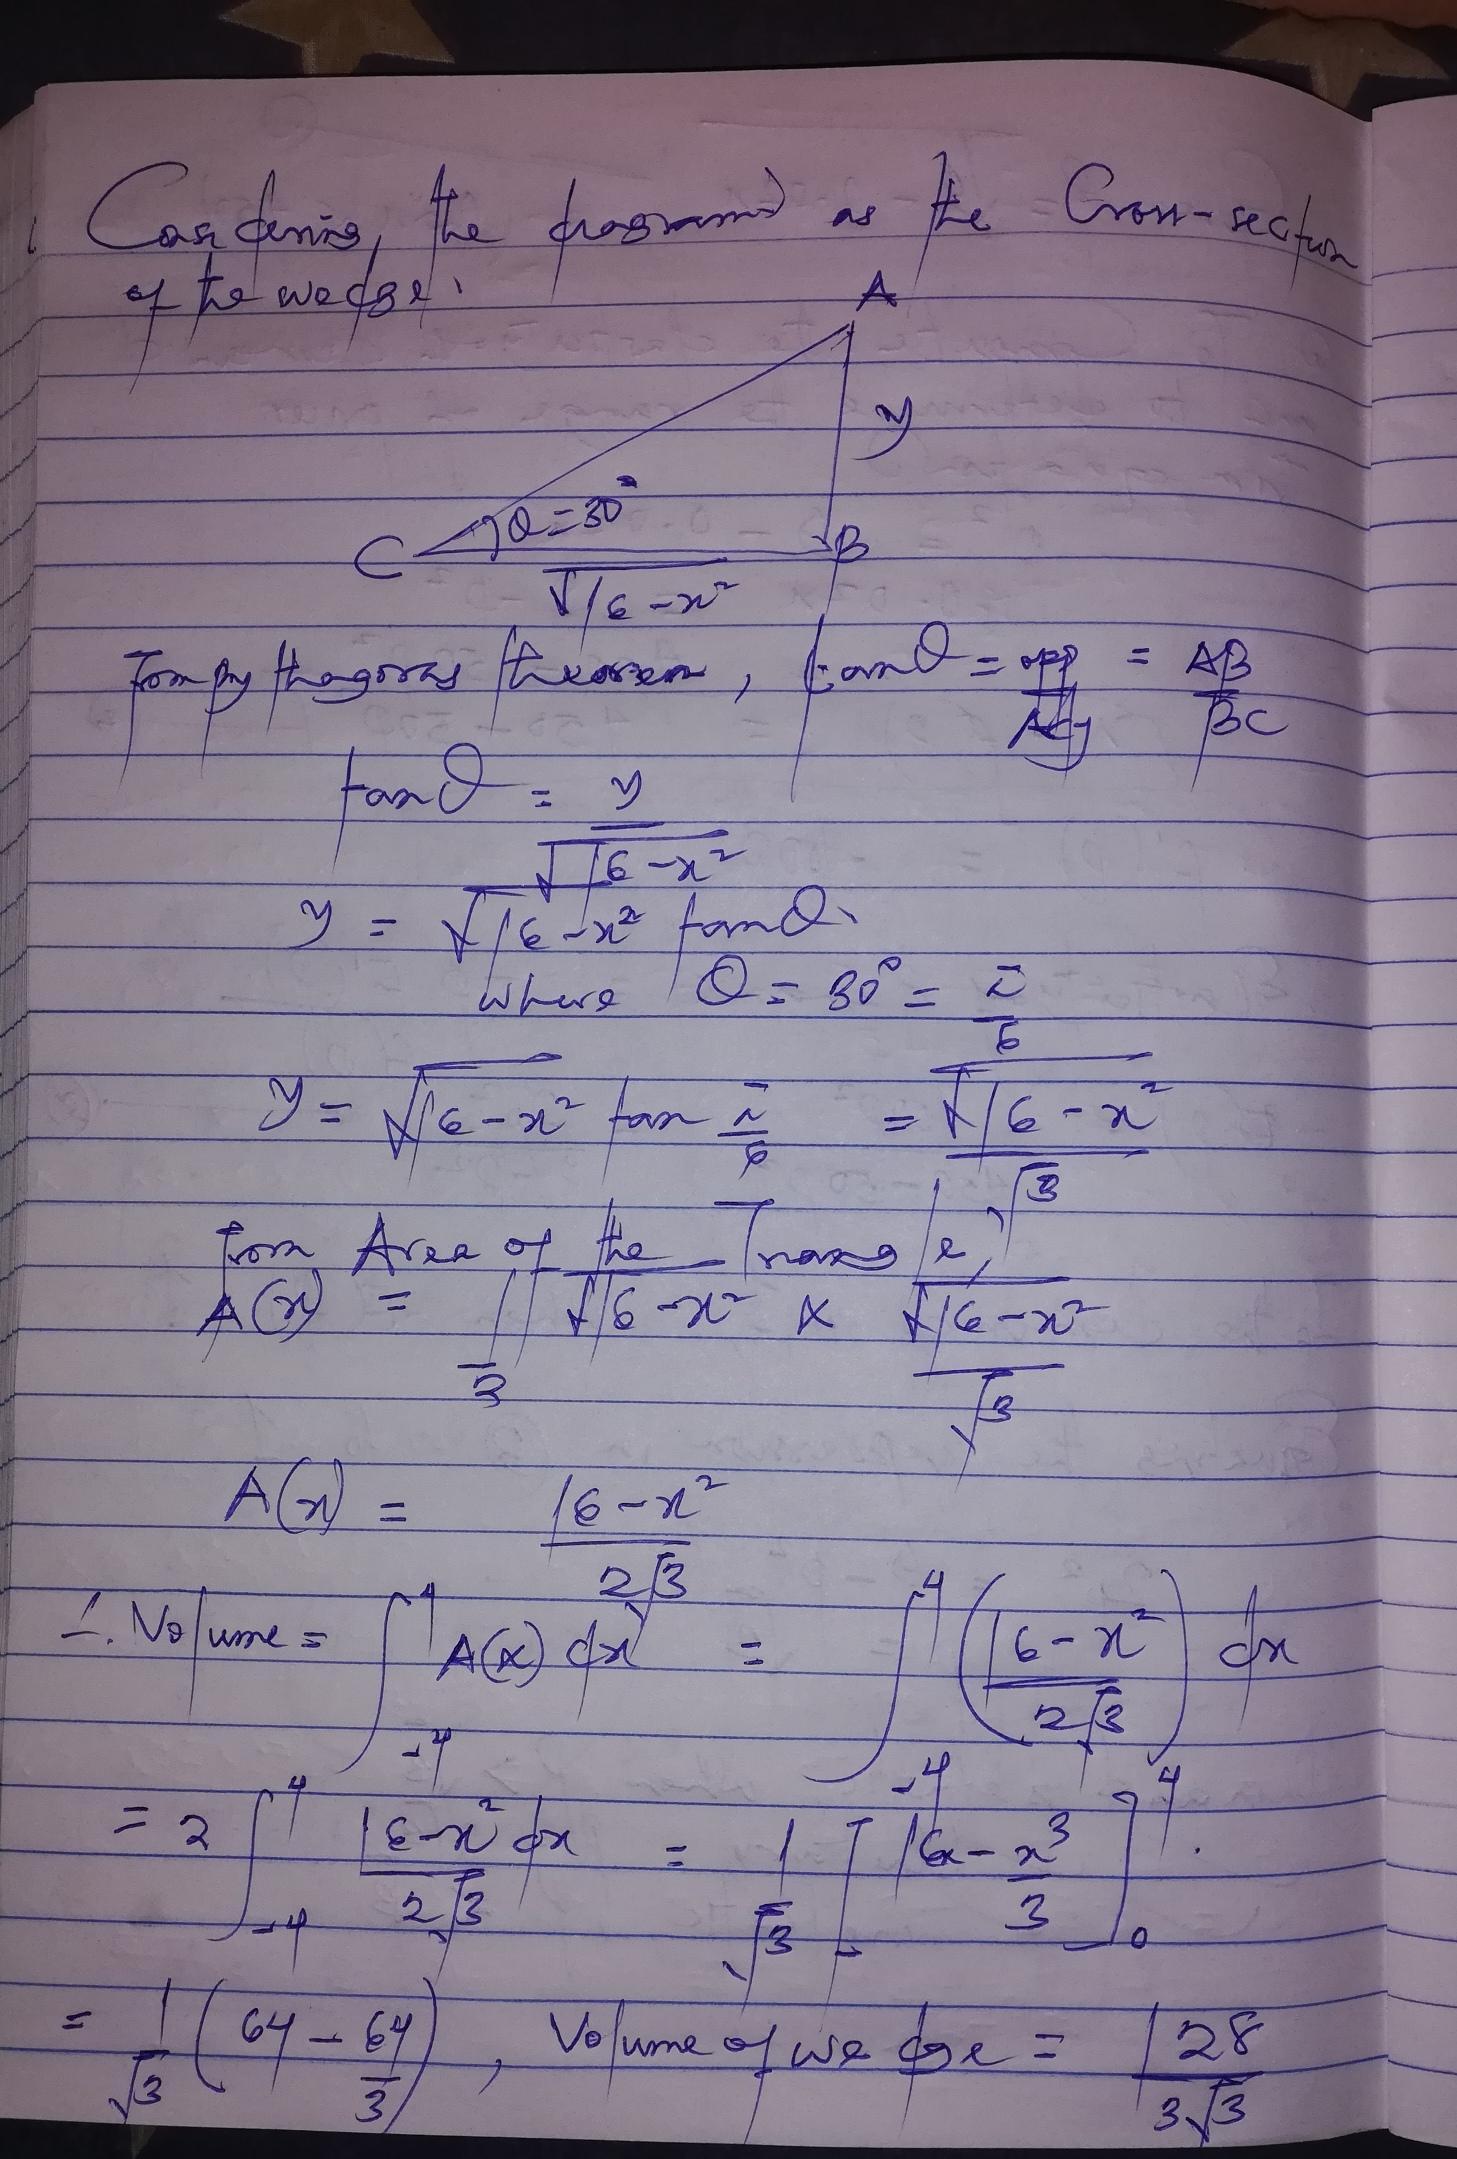 Considering, the diagramed as the Cross-section
of the wedge.
A
y
θ=30°
C
B
√16-x²
From Pythagoras theorem, tanθ = opp/Adj = AB/BC
tanθ = y/√16-x²
y = √16-x² tanθ.
where θ = 30° = π/6
y = √16-x² tan π/6 = √16-x²/√3
from Area of the Triangle,
A(x) = 1/2 √16-x² × √16-x²/√3
A(x) = 16-x²/2√3
∴ Volume = ∫₋₄⁴ A(x) dx = ∫₋₄⁴ (16-x²/2√3) dx
= 2 ∫₋₄⁴ 16-x²/2√3 dx = 1/√3 [16x - x³/3]₀⁴.
= 1/√3 (64 - 64/3), Volume of wedge = 128/3√3